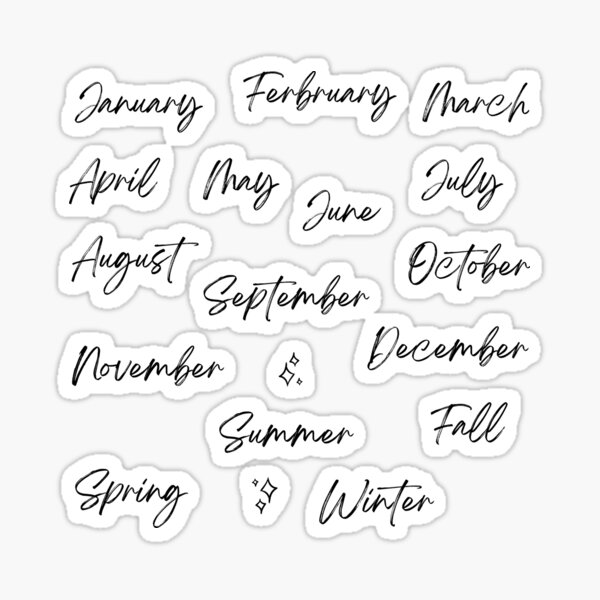 January
Ferbruary
March
April
May
June
July
August
September
October
November
December
Summer
Fall
Spring
Winter